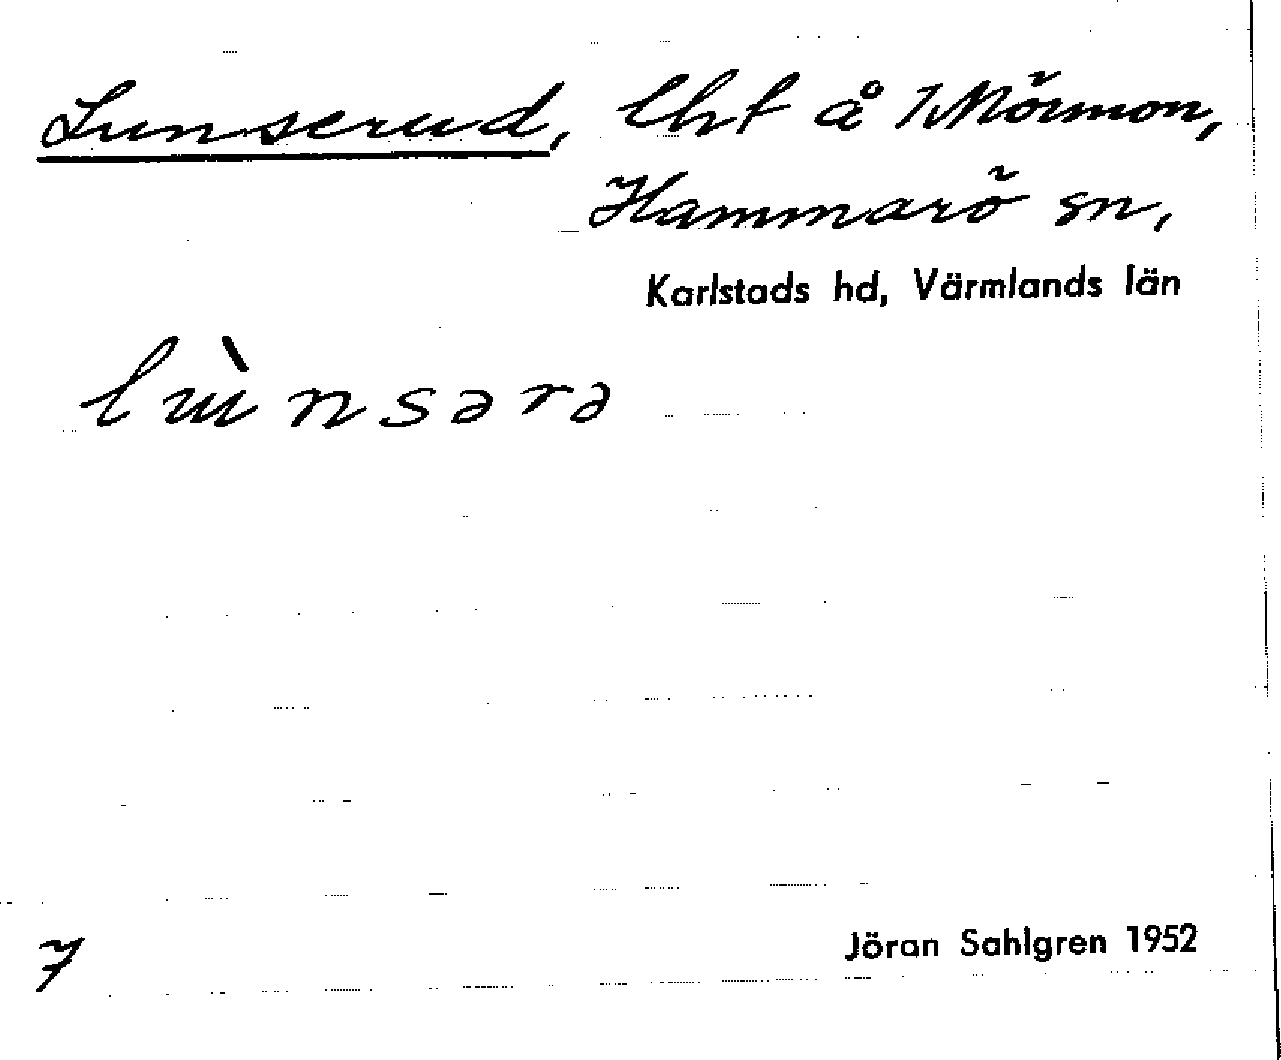 Lunserud, lht å Mörmon,
Hammarö sn,
Karlstads hd, Värmlands län
lùnsərə
7
Jöran Sahlgren 1952